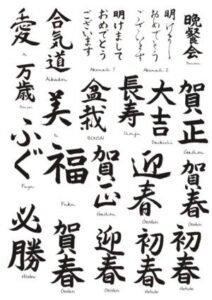 愛
合気道
明けまして
おめでとう
ございます
明けまして
おめでとう
ございます
晩餐会
万歳
美
盆栽
BONSAI
長寿
大吉
Daikichi
賀正
ふぐ
Fugu
福
Fuku
賀正
迎春
賀春
必勝
賀春
迎春
初春
初春